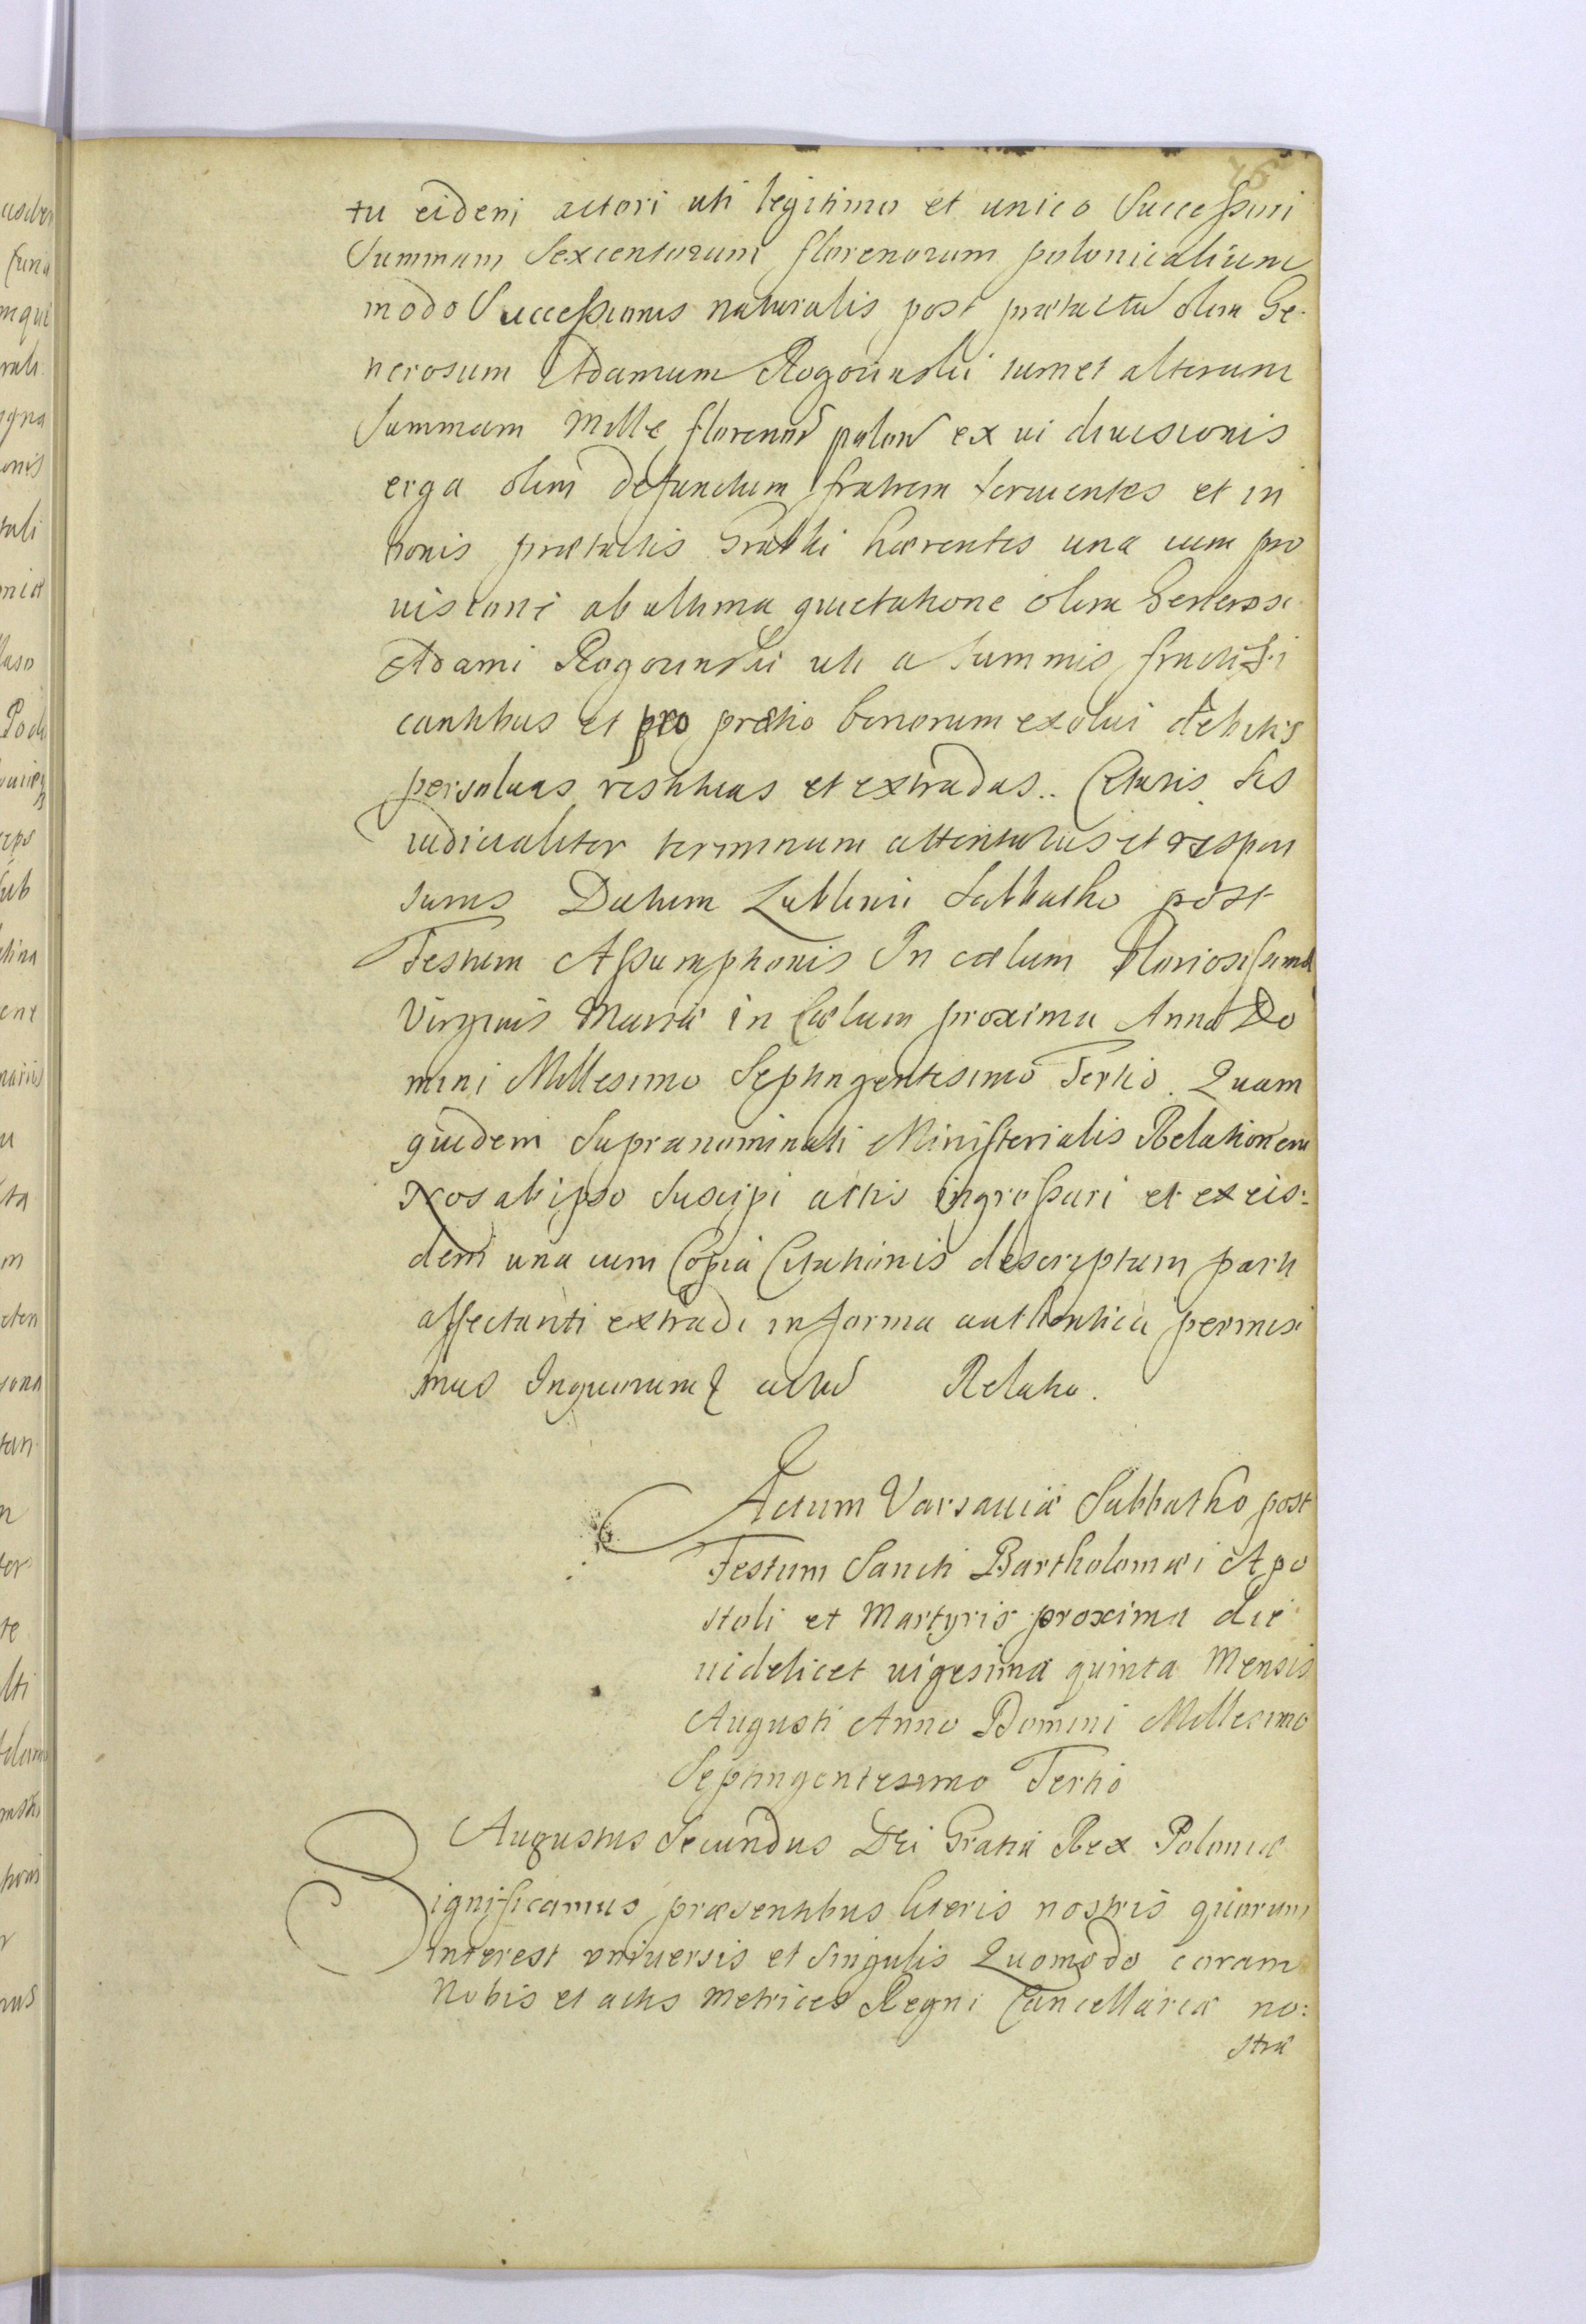 75
tu eidem actori uti legitimo et unico Successori
Summam Sexcentorum florenorum polonicalium
modo Successionis naturalis post prætactu olim Ge-
nerosum Adamum Rogoiinski tum et alteram
Summam Mille floreno polon ex ui diuisionis
erga olim defunctum fratrem seruientes et in
bonis prætactis hærentes una cum pro
uisione ab ultima quietatione olim Generosi
Adami Rogouinskii uti a Summis fructifi
cantibus et pro prætio bonorum exolui debitis
persoluas restituas et extradas.. Citaris sis
iudicialiter terminum attenturus et respon
surus Datum Lublinii Sabbatho post
Festum Assumptionis In cælum Gloriosissimæ
Virginis Mariæ in Cælum proximu Anno Do
mini Millesimo Septingentesimo Tertio. Quam
quidem Supranominati Ministerialis Relationem
Nos ab ipso Suscipi actis ingrossari et ex eis:
dem una cum Copia Citationis descriptum parti
affectanti extradi in forma authentica permisi
mus Inquorum actu Relatio.
Actum Varsauiæ Sabbatho post
Festum Sancti Bartholomæi Apo
stoli et Martyris proximo die
uidelicet uigesima quinta Mensis
Augusti Anno Domini Millesimo
Septingentesimo Tertio
Augustus Secundus Dei Gratia Rex Poloniæ
Significamus præsentibus literis nostris quorum
interest vniuersis et singulis Quomodo coram
Nobis et actis Metrices Regni Cancellariæ no:
stræ